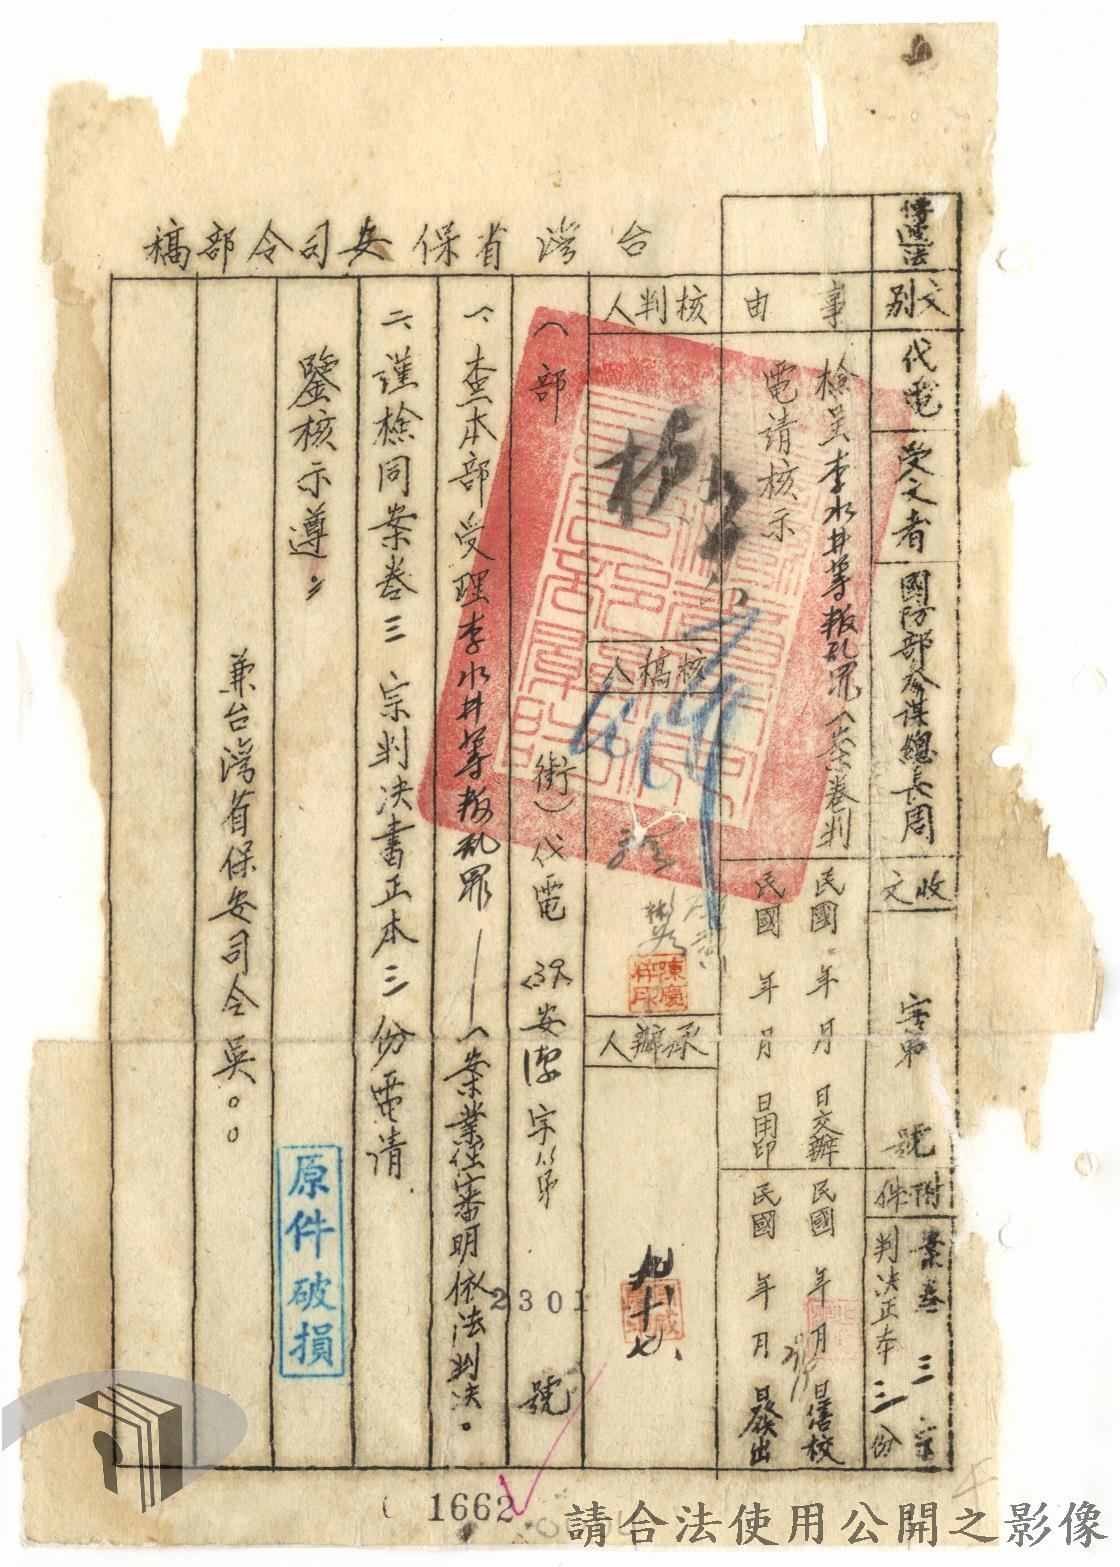 台灣省保安司令部稿
傳遞法
文別
代電
受文者
國防部參謀總長周
收文
字第 號
附件
案卷三宗
判決正本三份
事由
檢呈李水井等叛乱罪一案卷判
電请核示
民國 年 月 日交辦
民國 年 月 日繕校
民國 年 月 日用印
民國 年 月 日發出
核判人
核稿人
承辦人
九、十七、
(部 銜)代電 (39)安潔字第 2301 號
一、查本部受理李水井等叛乱罪——一案業經審明依法判决。
二、謹檢同案卷三宗判决書正本三份電请
鑒核示遵
兼台灣省保安司令吳。。
原件破損
1662
請合法使用公開之影像